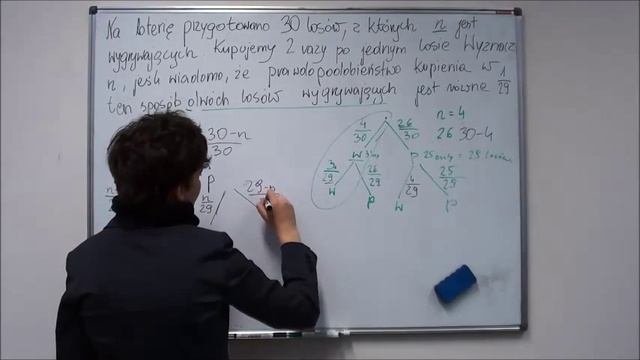 Na loterię przygotowano 30 losów, z których n jest
wygrywających. Kupujemy 2 razy po jednym losie. Wyznacz
n, jeśli wiadomo, że prawdopodobieństwo kupienia w
ten sposób dwóch losów wygrywających jest równe 1/29
30-n/30
P
n/29
29-n
4/30 26/30
n = 4
26 30-4
W P
3/29 26/29 4/29 25/29
W P W P